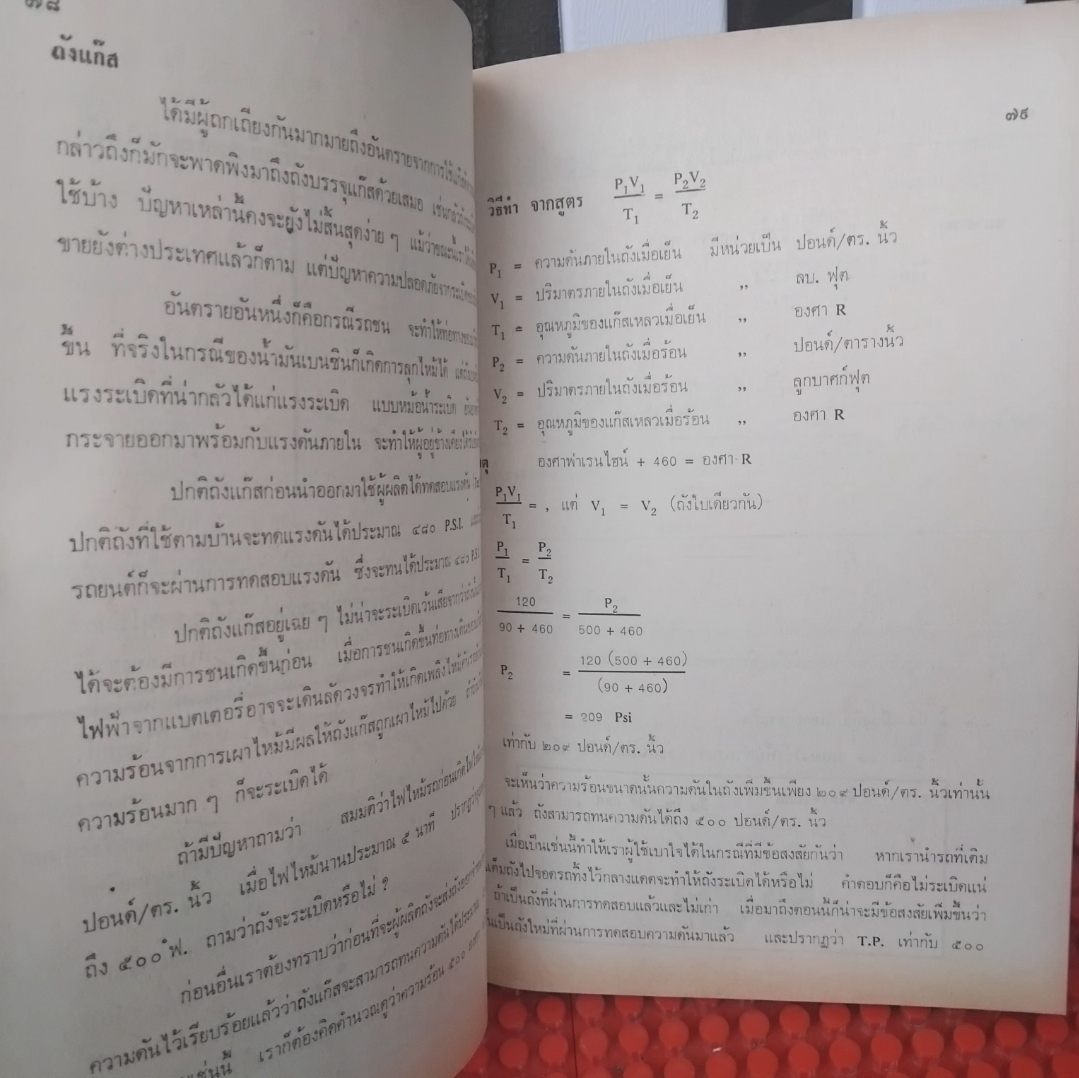 ๗๘
ถังแก๊ส
ได้มีผู้ถกเถียงกันมากมายถึงอันตรายจากการใช้แก๊ส
กล่าวถึงก็มักจะพาดพิงมาถึงถังบรรจุแก๊สด้วยเสมอ เช่น
ใช้บ้าง ปัญหาเหล่านี้คงจะยังไม่สิ้นสุดง่าย ๆ แม้ว่าขณะนี้เรา
ขายยังต่างประเทศแล้วก็ตาม แต่ปัญหาความปลอดภัยจาก
อันตรายอันหนึ่งก็คือกรณีรถชน จะทำให้ท่อทาง
ขึ้น ที่จริงในกรณีของน้ำมันเบนซินก็เกิดการลุกไหม้ได้
แรงระเบิดที่น่ากลัวได้แก่แรงระเบิด แบบหม้อน้ำระเบิด
กระจายออกมาพร้อมกับแรงดันภายใน จะทำให้ผู้อยู่ข้างเคียงได้รับ
ปกติถังแก๊สก่อนนำออกมาใช้ผู้ผลิตได้ทดสอบแรงดัน
ปกติถังที่ใช้ตามบ้านจะทดแรงดันได้ประมาณ ๔๘๐ P.S.I.
รถยนต์ก็จะผ่านการทดสอบแรงดัน ซึ่งจะทนได้ประมาณ ๔๘๐ P.S.I.
ปกติถังแก๊สอยู่เฉย ๆ ไม่น่าจะระเบิดเว้นเสียจากว่า
ได้จะต้องมีการชนเกิดขึ้นก่อน เมื่อการชนเกิดขึ้นท่อทางเดิน
ไฟฟ้าจากแบตเตอรี่อาจจะเดินลัดวงจรทำให้เกิดเพลิงไหม้
ความร้อนจากการเผาไหม้มีผลให้ถังแก๊สถูกเผาไหม้ไปด้วย
ความร้อนมาก ๆ ก็จะระเบิดได้
ถ้ามีปัญหาถามว่า สมมติว่าไฟไหม้รถก่อนเกิดไฟไหม้
ปอนด์/ตร. นิ้ว เมื่อไฟไหม้นานประมาณ ๕ นาที ปรากฏว่า
ถึง ๕๐๐ ํฟ. ถามว่าถังจะระเบิดหรือไม่ ?
ก่อนอื่นเราต้องทราบว่าก่อนที่จะผู้ผลิตถังจะส่งถังออก
ความดันไว้เรียบร้อยแล้วว่าถังแก๊สจะสามารถทนความดันได้ประมาณ
เช่นนี้ เราก็ต้องคิดคำนวณดูว่าความร้อน ๕๐๐
๗๙
วิธีทำ จากสูตร P₁V₁/T₁ = P₂V₂/T₂
P₁ = ความดันภายในถังเมื่อเย็น มีหน่วยเป็น ปอนด์/ตร. นิ้ว
V₁ = ปริมาตรภายในถังเมื่อเย็น ,, ลบ. ฟุต
T₁ = อุณหภูมิของแก๊สเหลวเมื่อเย็น ,, องศา R
P₂ = ความดันภายในถังเมื่อร้อน ,, ปอนด์/ตารางนิ้ว
V₂ = ปริมาตรภายในถังเมื่อร้อน ,, ลูกบาศก์ฟุต
T₂ = อุณหภูมิของแก๊สเหลวเมื่อร้อน ,, องศา R
องศาฟาเรนไฮน์ + 460 = องศา R
P₁V₁/T₁ = , แต่ V₁ = V₂ (ถังใบเดียวกัน)
P₁/T₁ = P₂/T₂
120/90 + 460 = P₂/500 + 460
P₂ = 120 (500 + 460)/(90 + 460)
= 209 Psi
เท่ากับ ๒๐๙ ปอนด์/ตร. นิ้ว
จะเห็นว่าความร้อนขนาดนั้นความดันในถังเพิ่มขึ้นเพียง ๒๐๙ ปอนด์/ตร. นิ้วเท่านั้น
ๆ แล้ว ถังสามารถทนความดันได้ถึง ๕๐๐ ปอนด์/ตร. นิ้ว
เมื่อเป็นเช่นนี้ทำให้เราผู้ใช้เบาใจได้ในกรณีที่มีข้อสงสัยกันว่า หากเรานำรถที่เติม
เต็มถังไปจอดรถทิ้งไว้กลางแดดจะทำให้ถังระเบิดได้หรือไม่ คำตอบก็คือไม่ระเบิดแน่
ถ้าเป็นถังที่ผ่านการทดสอบแล้วและไม่เก่า เมื่อมาถึงตอนนี้ก็น่าจะมีข้อสงสัยเพิ่มขึ้นว่า
เป็นถังใหม่ที่ผ่านการทดสอบความดันมาแล้ว และปรากฏว่า T.P. เท่ากับ ๕๐๐